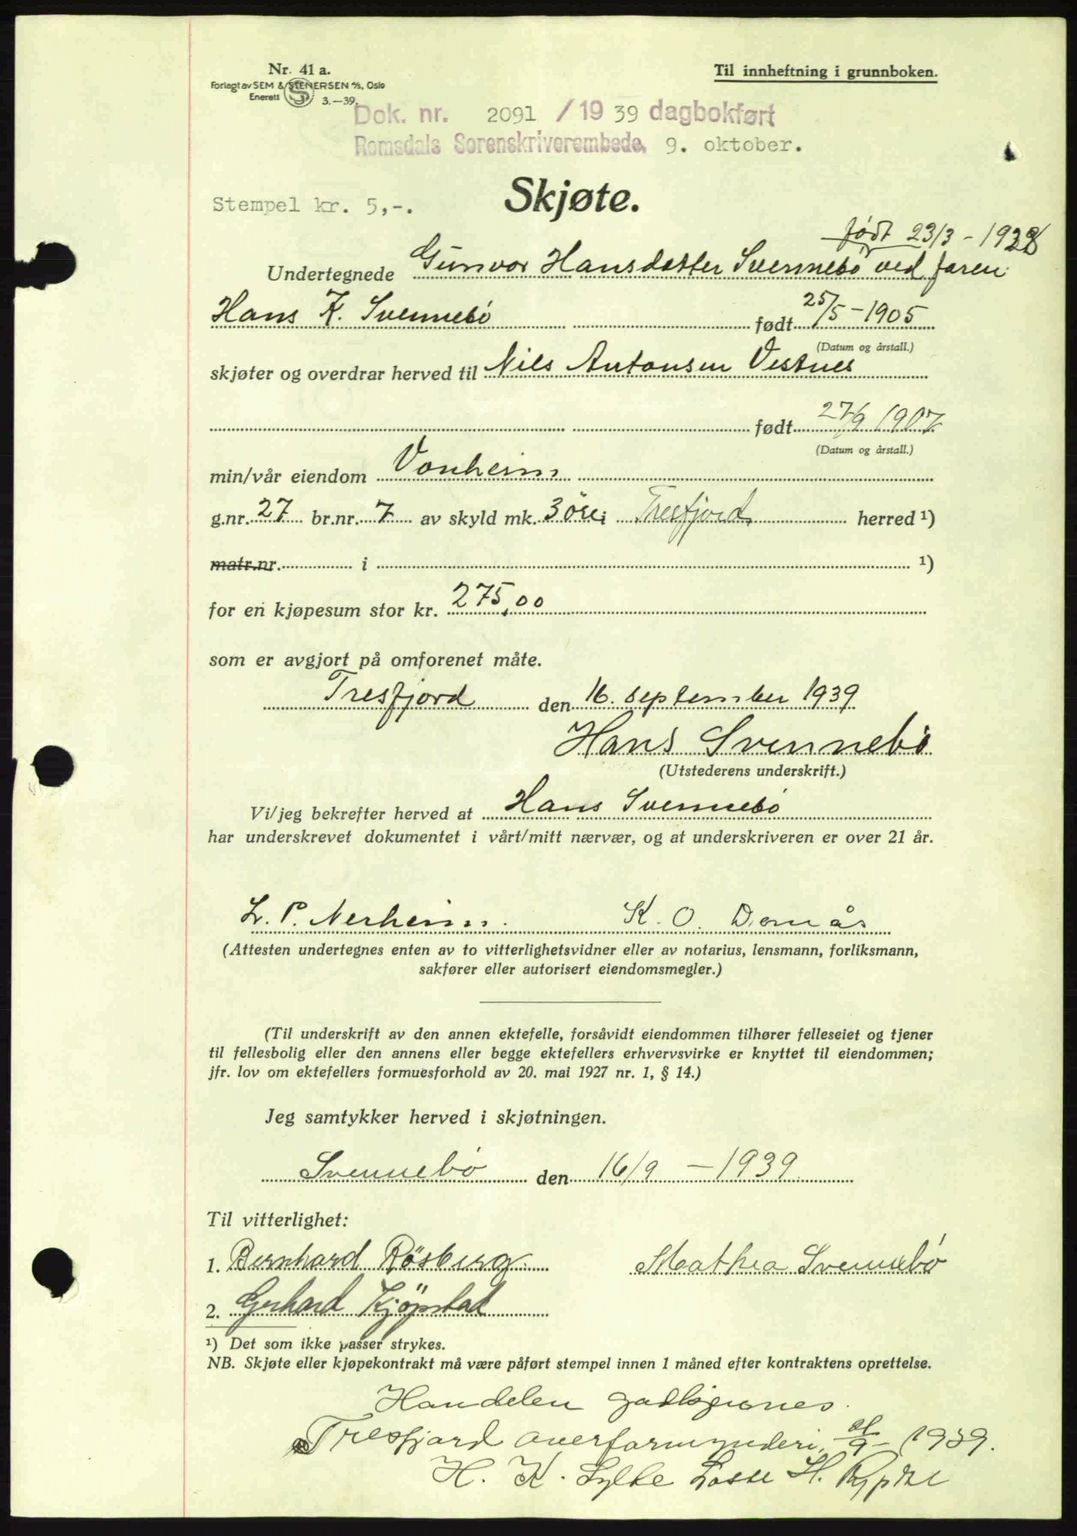 Nr. 41 a.
Forlagt av SEM & STENERSEN A/S, Oslo
Enerett S 3.–39.
Til innheftning i grunnboken.
Dok. nr. 2091 / 19 39 dagbokført
Romsdals Sorenskriverembede, 9. oktober.
Stempel kr. 5,-.
Skjøte.
født 23/3 - 1938
Undertegnede Gunvor Hansdatter Svennebö ved faren
Hans K. Svennebö født 25/5 - 1905
(Datum og årstall.)
skjøter og overdrar herved til Nils Antonsen Vestnes
født 27/9 1907
(Datum og årstall.)
min/vår eiendom Vonheim
g.nr. 27 br.nr. 7 av skyld mk. 3 öre i Tresfjord herred ¹)
matr.nr. i ¹)
for en kjøpesum stor kr. 275,00
som er avgjort på omforenet måte.
Tresfjord den 16. september 1939
Hans Svennebö
(Utstederens underskrift.)
Vi/jeg bekrefter herved at Hans Svennebö
har underskrevet dokumentet i vårt/mitt nærvær, og at underskriveren er over 21 år.
L. P. Nerheim. K. O. Domås
(Attesten undertegnes enten av to vitterlighetsvidner eller av notarius, lensmann, forliksmann,
sakfører eller autorisert eiendomsmegler.)
(Til underskrift av den annen ektefelle, forsåvidt eiendommen tilhører felleseiet og tjener
til fellesbolig eller den annens eller begge ektefellers erhvervsvirke er knyttet til eiendommen;
jfr. lov om ektefellers formuesforhold av 20. mai 1927 nr. 1, § 14.)
Jeg samtykker herved i skjøtningen.
Svennebö den 16/9 - 1939
Til vitterlighet:
1. Bernhard Rösberg Mathea Svennebö
2. Gerhard Kjöpstad
¹) Det som ikke passer strykes.
NB. Skjøte eller kjøpekontrakt må være påført stempel innen 1 måned efter kontraktens oprettelse.
Handelen godkjennes.
Tresfjord overformynderi, /9 - 1939.
H. K. Sylte Lasse H.